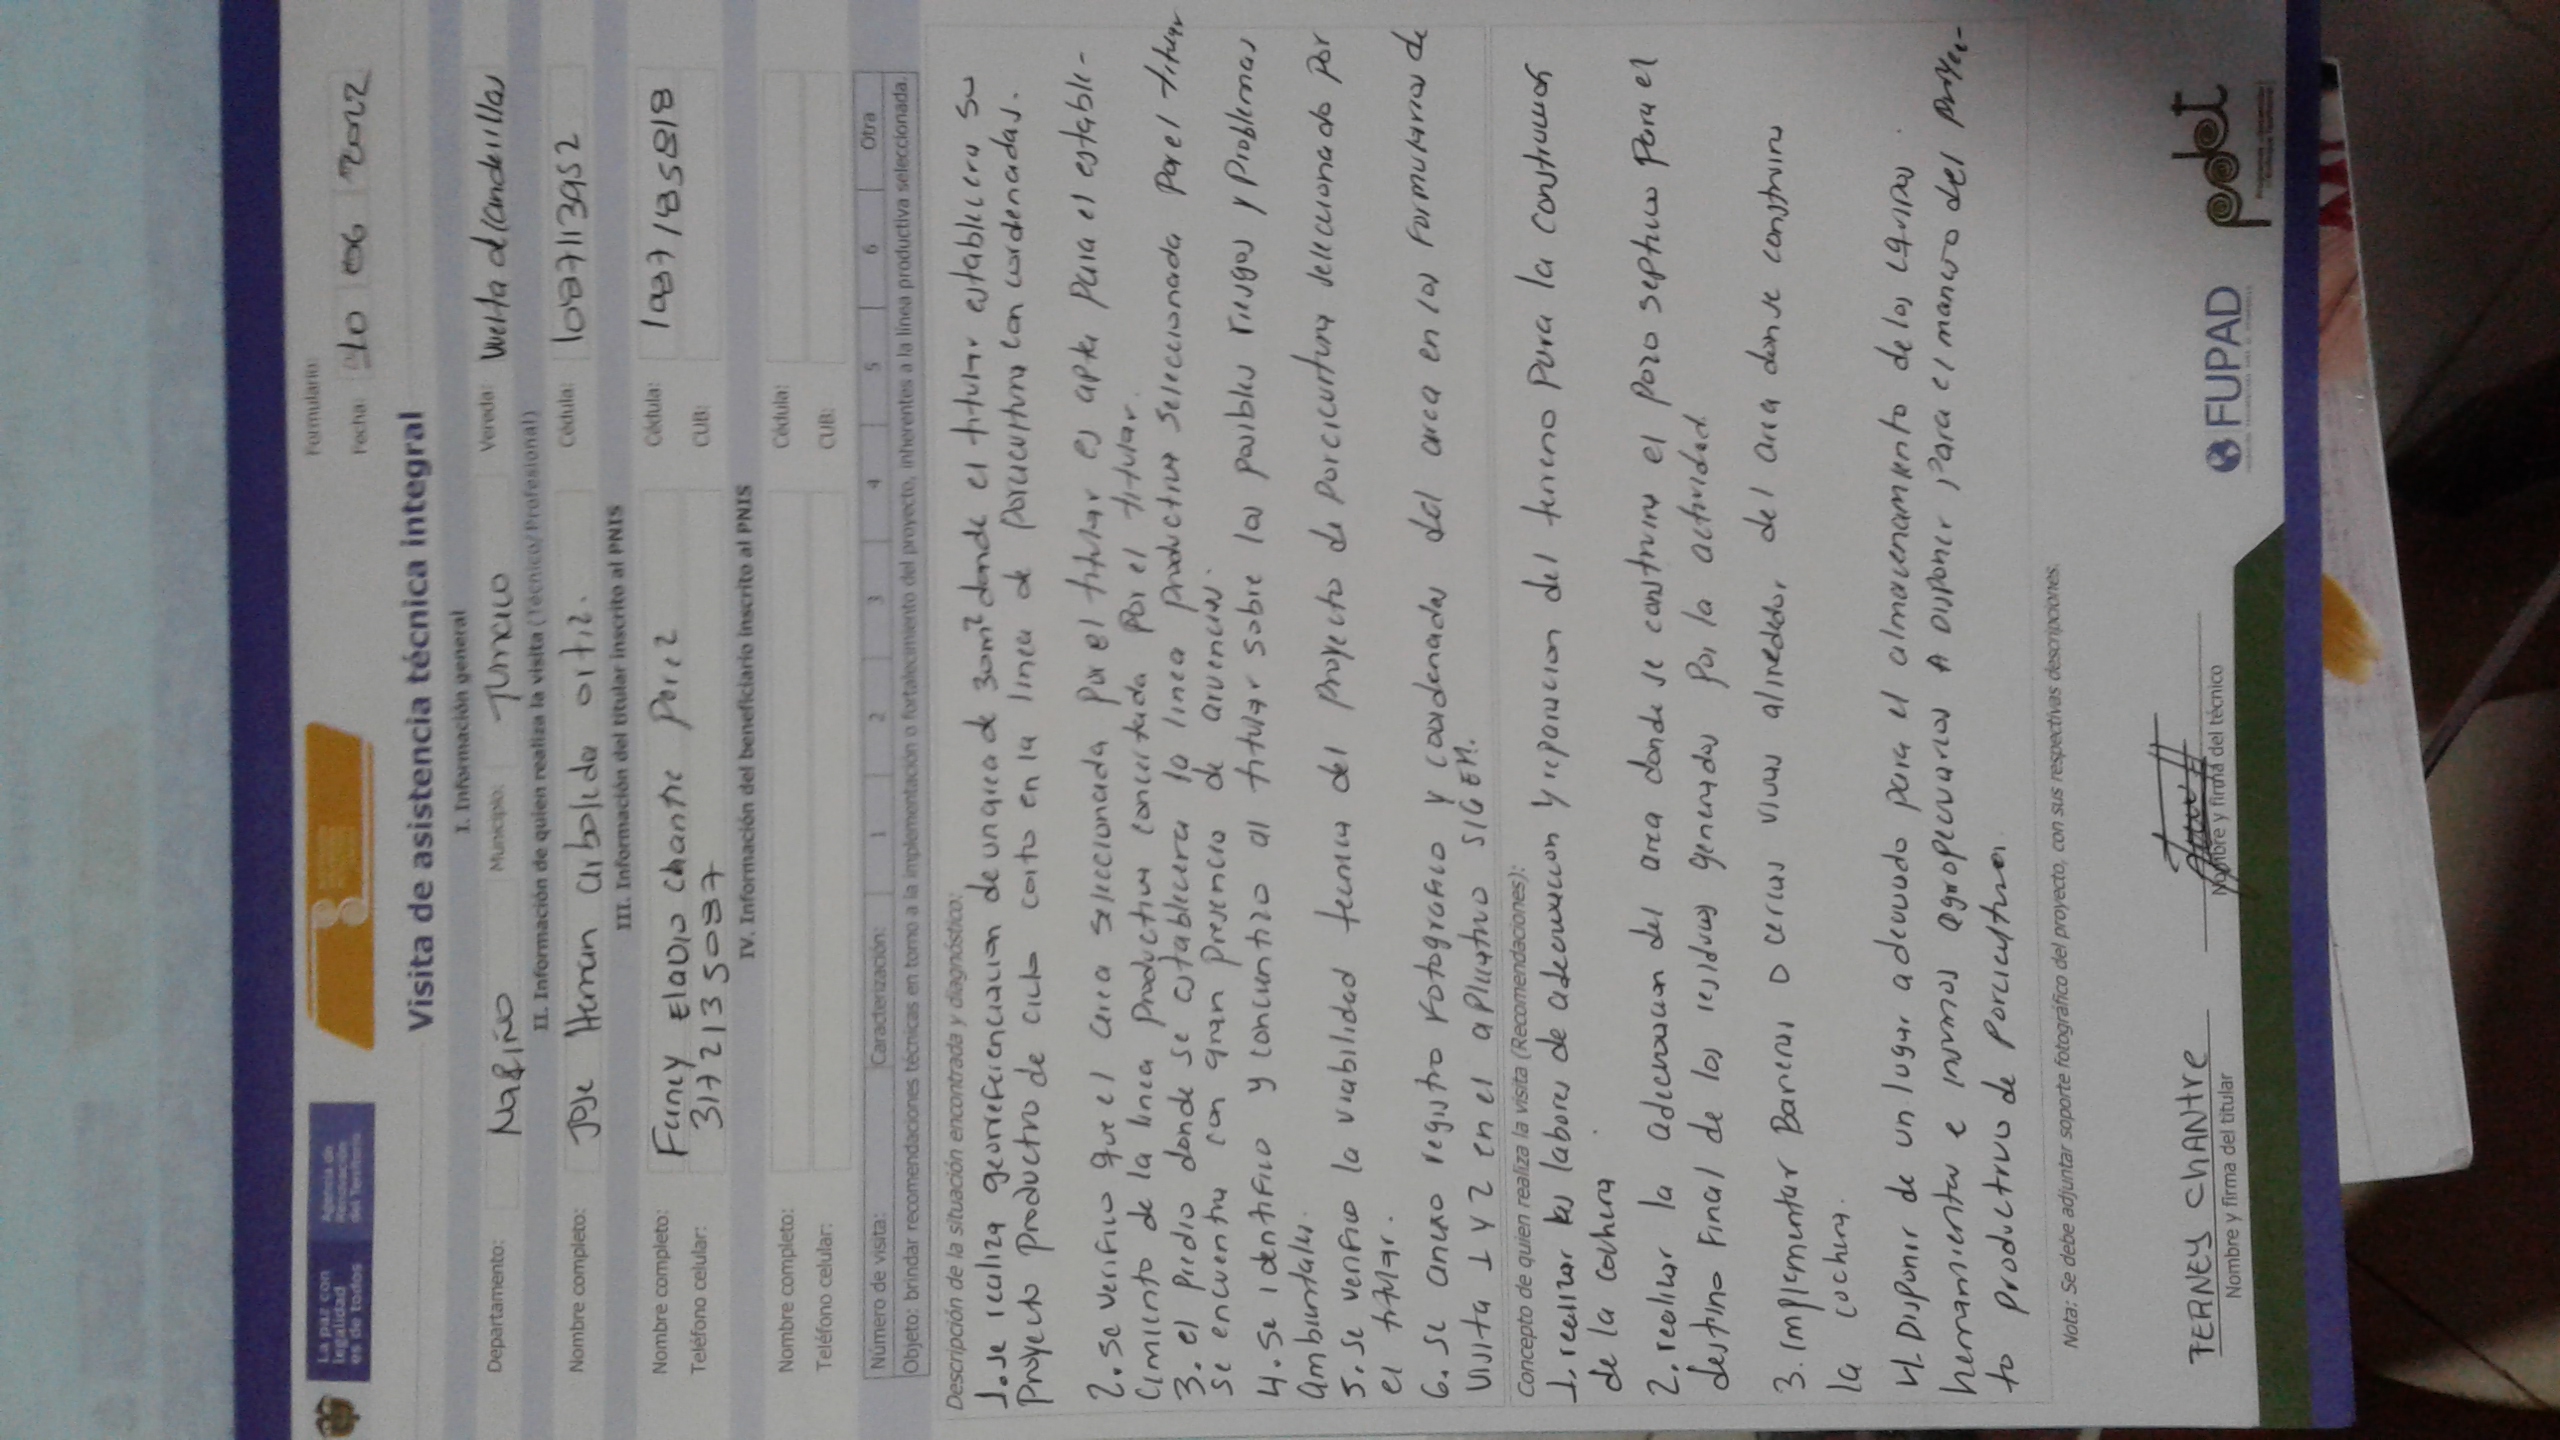 La paz con
legalidad
es de todos
Agencia de
Renovación
del Territorio
Formulario:
Fecha: 10 06 2022
Visita de asistencia técnica integral
I. Información general
Departamento: NaRiÑO Municipio: Tumaco Vereda: Vuelta de candelillas
II. Información de quien realiza la visita (Técnico/Profesional)
Nombre completo: Jose Hernan arboleda ortiz. Cédula: 1087113952
III. Información del titular inscrito al PNIS
Nombre completo: Faney ElaDio chantre Perez Cédula: 1087185818
Teléfono celular: 3172135087 CUB:
IV. Información del beneficiario inscrito al PNIS
Nombre completo: Cédula:
Teléfono celular: CUB:
Número de visita: Caracterización: 1 2 3 4 5 6 Otra
Objeto: brindar recomendaciones técnicas en torno a la implementación o fortalecimiento del proyecto, inherentes a la línea productiva seleccionada.
Descripción de la situación encontrada y diagnóstico:
1. se realiza georreferenciacion de un area de 30m² donde el titular establecera su
Proyecto Productivo de ciclo corto en la linea de Porcicultura con cordenadas.
2. se verifico que el area seleccionada por el titular es apta para el estable-
cimiento de la linea Productiva concertada por el titular.
3. el predio donde se establecera la linea productiva seleccionada por el titular
se encuentra con gran presencia de arvences.
4. se identifico y concientizo al titular sobre los posibles riesgos y Problemas
ambientales.
5. se verifico la viabilidad tecnica del Proyecto de Porcicultura seleccionado por
el titular.
6. se anexo registro Fotografico y coordenadas del area en los Formularios de
visita 1 y 2 en el aplicativo SIGEM.
Concepto de quien realiza la visita (Recomendaciones):
1. realizar las labores de adecuacion y reparacion del terreno para la construccion
de la cochera
2. realizar la adecuacion del area donde se construira el pozo septico para el
destino Final de los residuos generados por la actividad.
3. Implementar Barreras o cercas vivas alrededor, del area donde construira
la cochera.
4. Disponer de un lugar adecuado para el almacenamiento de los equipos
herramientas e insumos agropecuarios A Disponer, para el manejo del proyec-
to productivo de Porcicultura.
Nota: Se debe adjuntar soporte fotográfico del proyecto, con sus respectivas descripciones.
FERNEY CHANTRE
Nombre y firma del titular
Nombre y firma del técnico
FUPAD
pdet